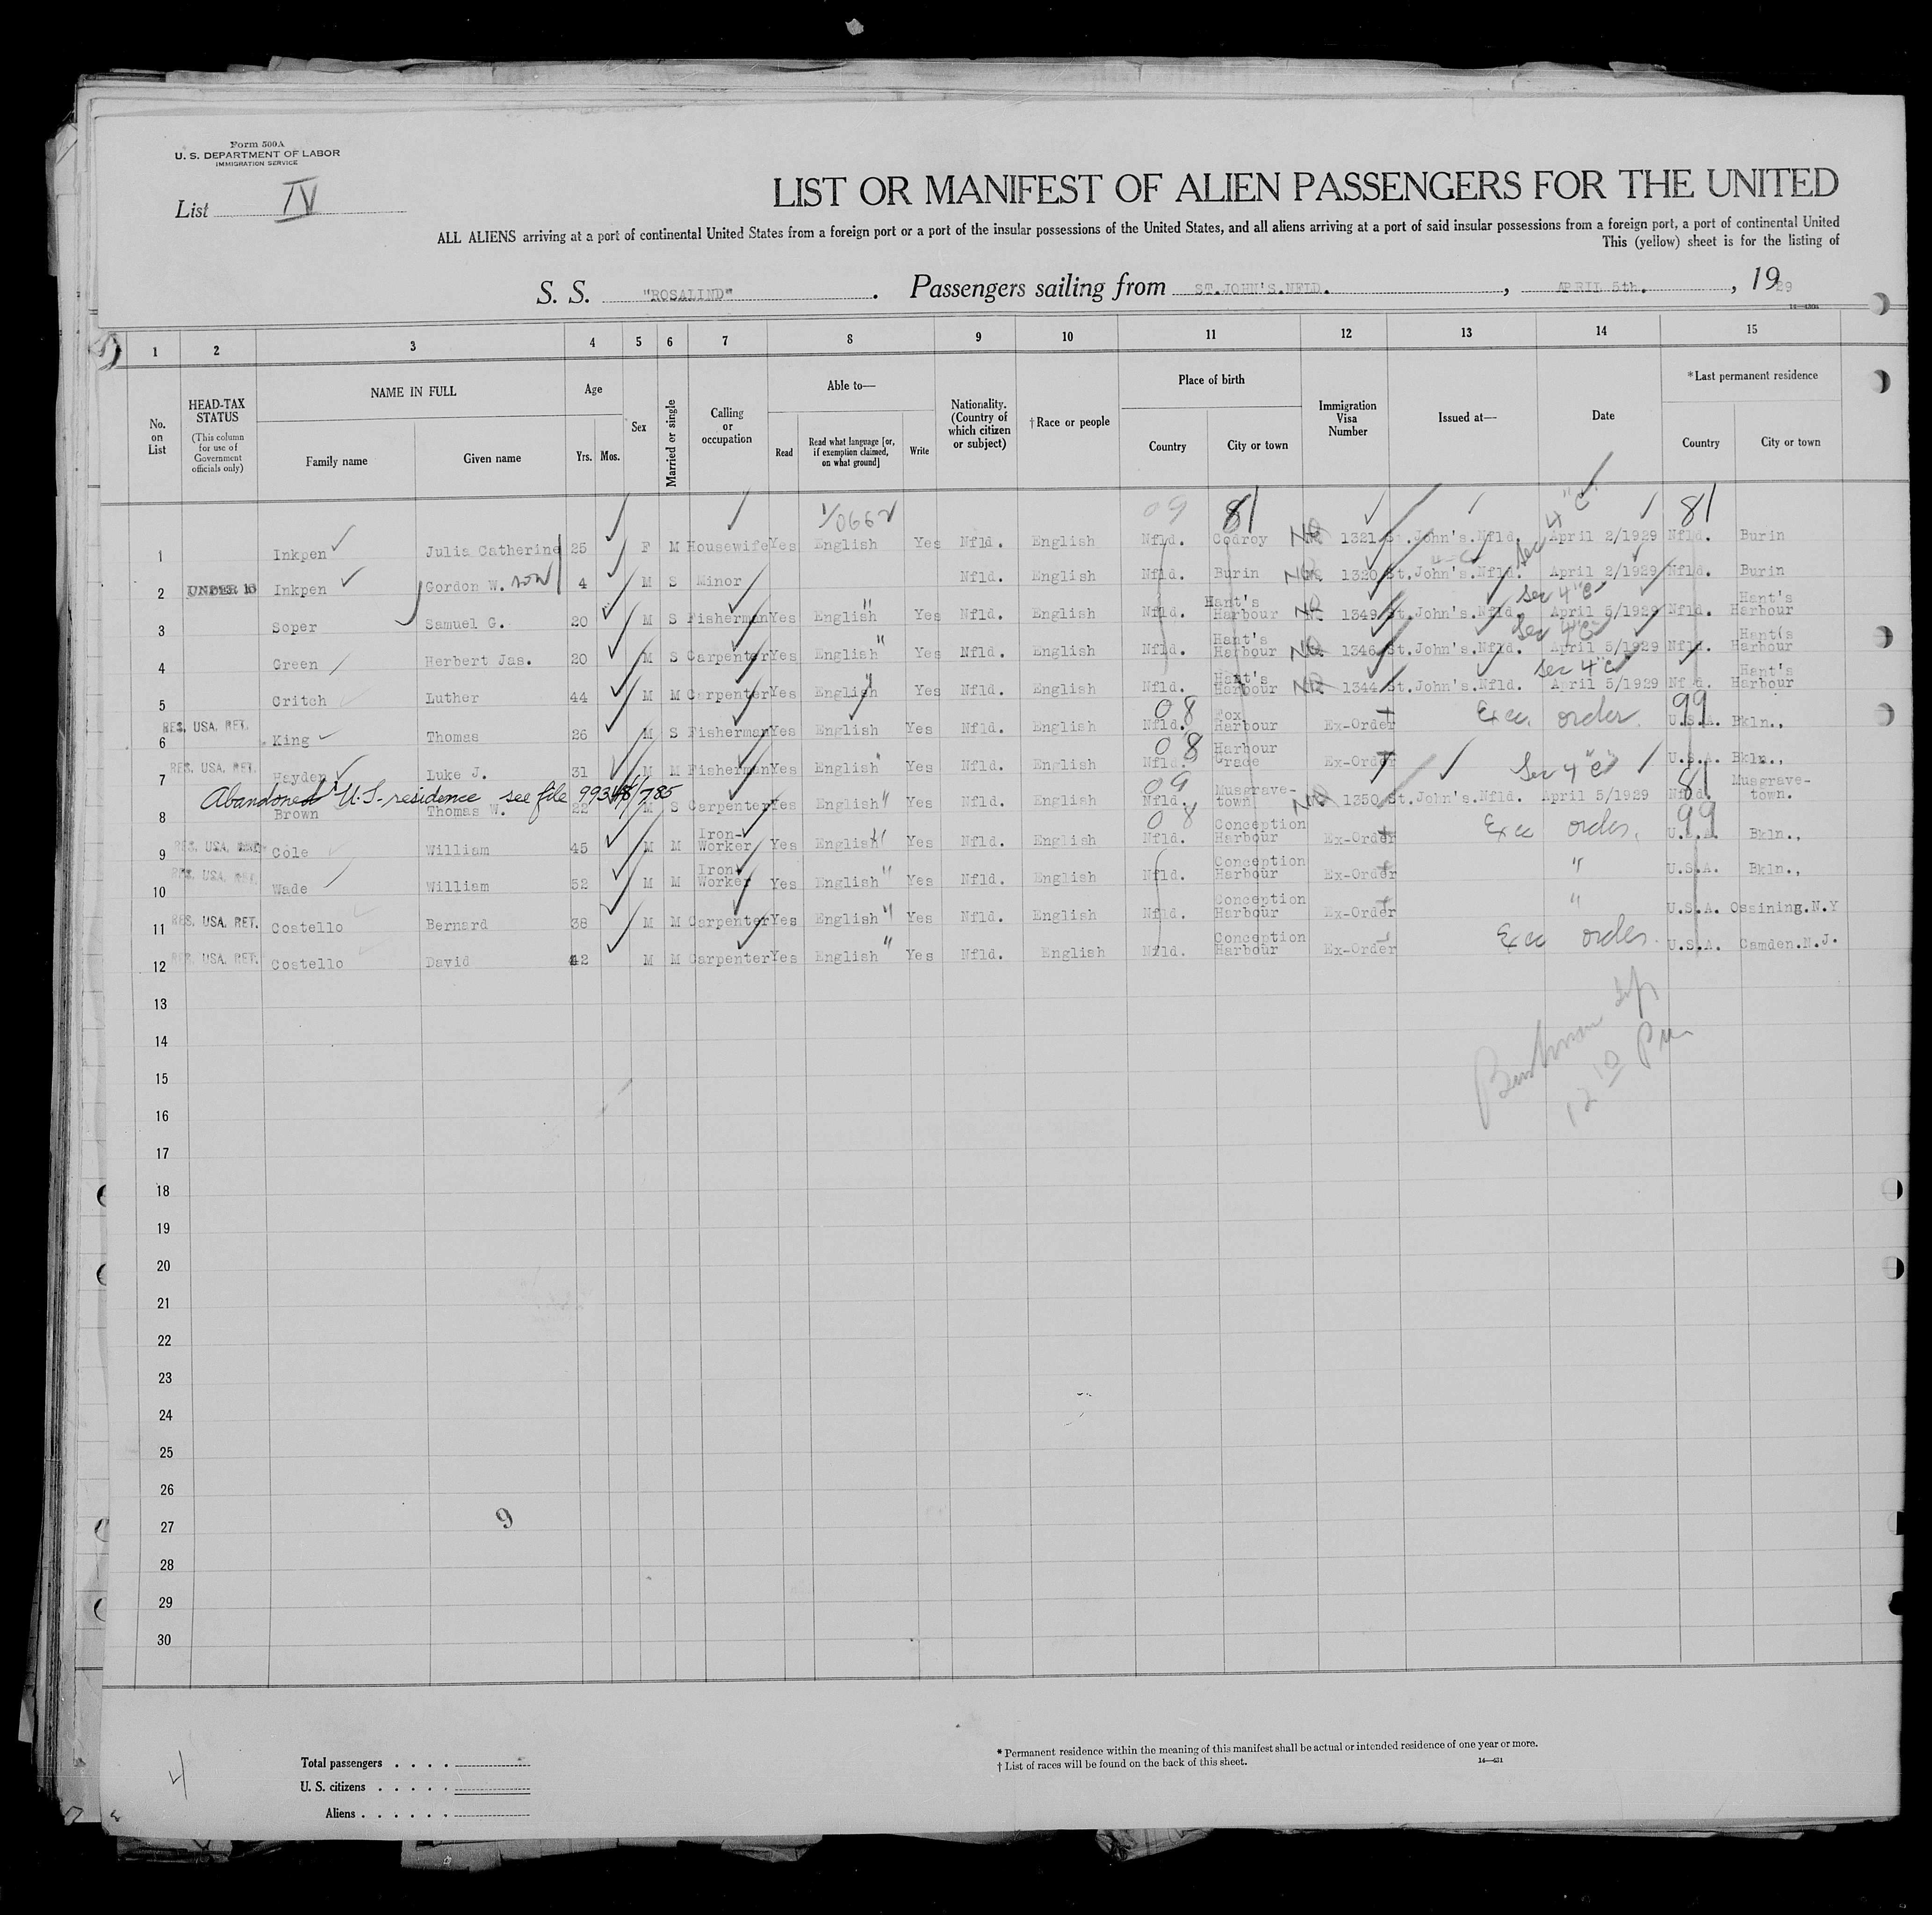 Form 500A
U. S. DEPARTMENT OF LABOR
IMMIGRATION SERVICE
List IV
LIST OR MANIFEST OF ALIEN PASSENGERS FOR THE UNITED
ALL ALIENS arriving at a port of continental United States from a foreign port or a port of the insular possessions of the United States, and all aliens arriving at a port of said insular possessions from a foreign port, a port of continental United
This (yellow) sheet is for the listing of
S. S. "ROSALIND". Passengers sailing from ST.JOHN'S.NFLD., APRIL 5th., 1929
1 2 3 4 5 6 7 8 9 10 11 12 13 14 15
No. on List
HEAD-TAX STATUS
(This column for use of Government officials only)
NAME IN FULL
Family name Given name
Age
Yrs. Mos.
Sex
Married or single
Calling or occupation
Able to—
Read Read what language [or, if exemption claimed, on what ground] Write
Nationality. (Country of which citizen or subject)
†Race or people
Place of birth
Country City or town
Immigration Visa Number
Issued at—
Date
*Last permanent residence
Country City or town
09 81 4 "C" 81
1 Inkpen Julia Catherine 25 F M Housewife Yes English Yes Nfld. English Nfld. Codroy NQ 1321 St.John's.Nfld. Sec April 2/1929 Nfld. Burin
2 UNDER 16 Inkpen Gordon W. son 4 M S Minor Nfld. English Nfld. Burin NQ 1320 St.John's.Nfld. April 2/1929 Nfld. Burin
Sec 4 "C"
3 Soper Samuel G. 20 M S Fisherman Yes English " Yes Nfld. English Nfld. Hant's Harbour NQ 1349 St.John's.Nfld. April 5/1929 Nfld. Hant's Harbour
Sec 4 "C"
4 Green Herbert Jas. 20 M S Carpenter Yes English " Yes Nfld. English Nfld. Hant's Harbour NQ 1346 St.John's.Nfld. April 5/1929 Nfld. Hant's Harbour
Sec 4 "C"
5 Critch Luther 44 M M Carpenter Yes English " Yes Nfld. English Nfld. Hant's Harbour NQ 1344 St.John's.Nfld. April 5/1929 Nfld. Hant's Harbour
08 99
6 RES. USA. RET. King Thomas 26 M S Fisherman Yes English Yes Nfld. English Nfld. Fox Harbour Ex-Order Exec order U.S.A. Bkln.,
08
7 RES. USA. RET. Hayden Luke J. 31 M M Fisherman Yes English " Yes Nfld. English Nfld. Harbour Grace Ex-Order Sec 4 "C" U.S.A Bkln.,
Abandoned U.S. residence see file 99348/785
09 81
8 Brown Thomas W. 22 M S Carpenter Yes English " Yes Nfld. English Nfld. Musgrave-town NQ 1350 St.John's.Nfld. April 5/1929 Nfld. Musgrave-town.
08 99
9 RES. USA. RET. Cole William 45 M M Iron-Worker Yes English " Yes Nfld. English Nfld. Conception Harbour Ex-Order Exec order. U.S.A. Bkln.,
10 RES. USA. RET. Wade William 52 M M Iron Worker Yes English " Yes Nfld. English Nfld. Conception Harbour Ex-Order " U.S.A. Bkln.,
11 RES. USA. RET. Costello Bernard 38 M M Carpenter Yes English " Yes Nfld. English Nfld. Conception Harbour Ex-Order " U.S.A. Ossining.N.Y
12 RES. USA. RET. Costello David 42 M M Carpenter Yes English " Yes Nfld. English Nfld. Conception Harbour Ex-Order Exec order. U.S.A. Camden.N.J.
13
14
15
16
17
18
19
20
21
22
23
24
25
26
27
9
28
29
30
Total passengers . . . .
U. S. citizens . . . . .
Aliens . . . . . .
* Permanent residence within the meaning of this manifest shall be actual or intended residence of one year or more.
† List of races will be found on the back of this sheet.
14—431